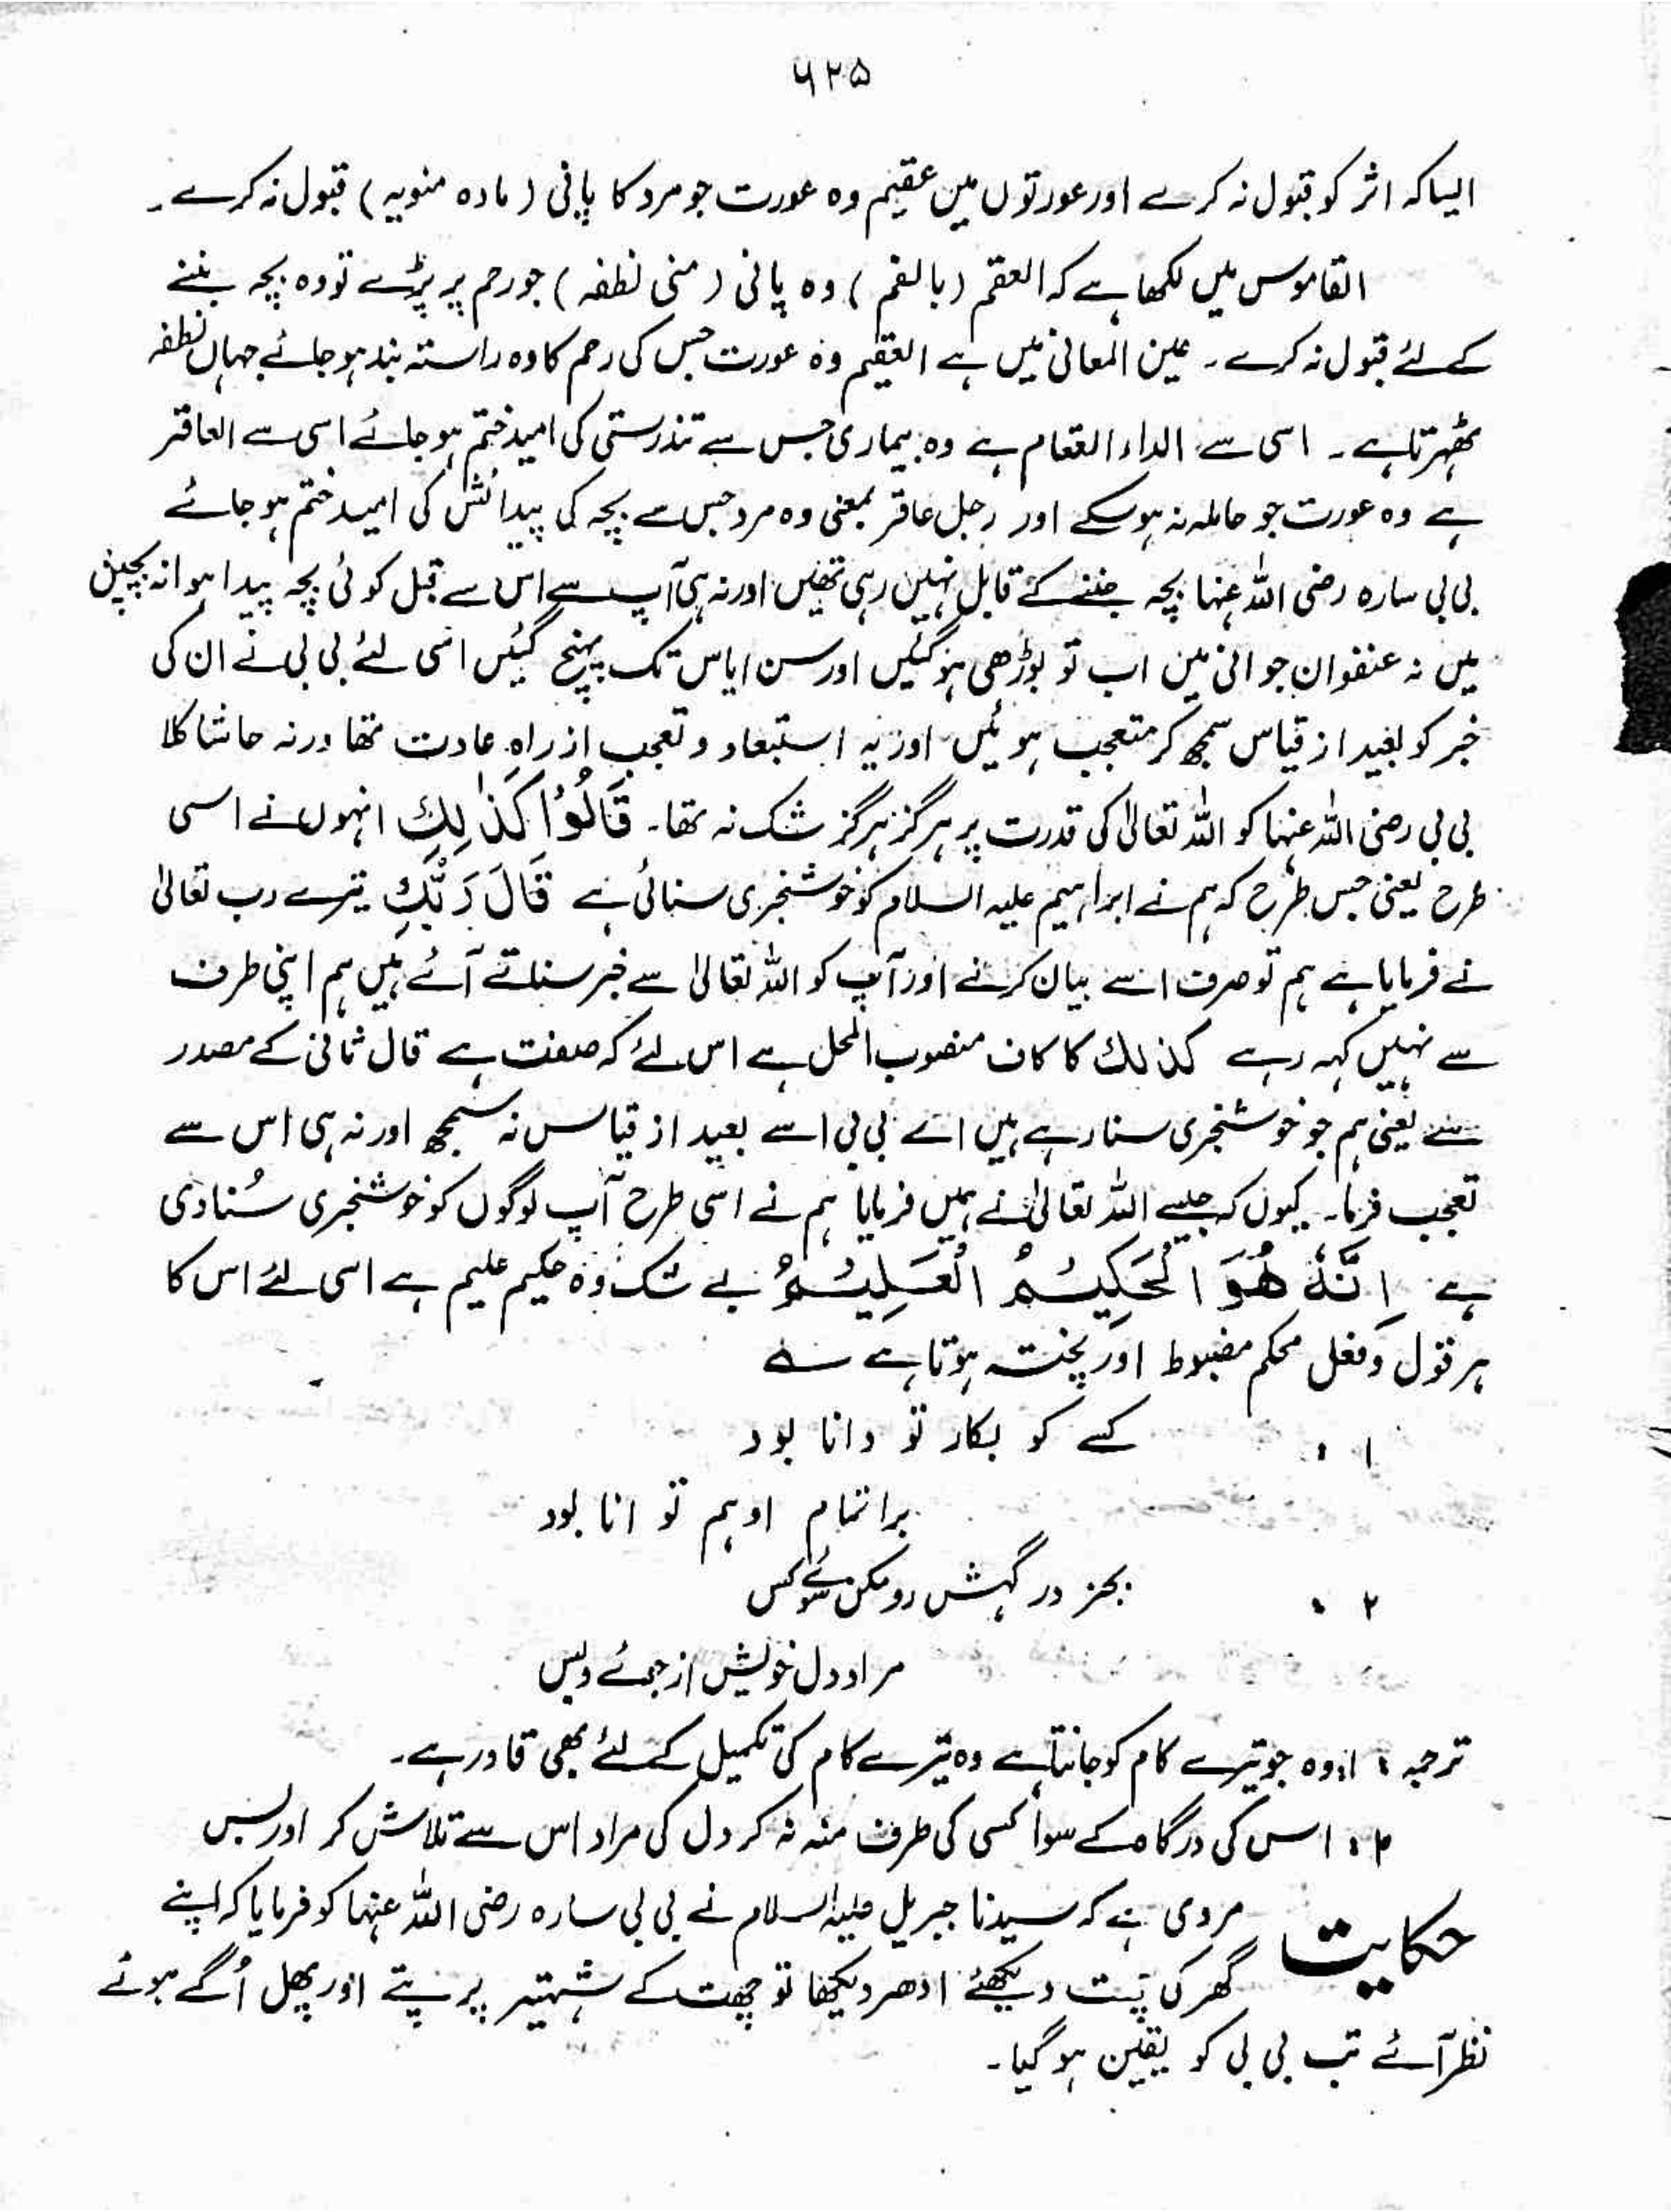 ۶۲۵
ایسا کہ اثر کو قبول نہ کرے اور عورتوں میں عقیم وہ عورت جو مرد کا پانی (مادہ منویہ) قبول نہ کرے۔
القاموس میں لکھا ہے کہ العقم (بالضم) وہ پانی (منی نطفہ) جو رحم پر پڑے تو وہ بچہ بننے
کے لئے قبول نہ کرے۔ عین المعانی میں ہے العقیم وہ عورت جس کی رحم کا وہ راستہ بند ہو جائے جہاں نطفہ
ٹھہرتا ہے۔ اسی سے الداء العقام ہے وہ بیماری جس سے تندرستی کی امید ختم ہو جائے اسی سے العاقر
ہے وہ عورت جو حاملہ نہ ہو سکے اور رجل عاقر بمعنی وہ مرد جس سے بچہ کی پیدائش کی امید ختم ہو جائے
بی بی سارہ رضی اللہ عنہا بچہ جننے کے قابل نہیں رہی تھیں اور نہ ہی آپ سے اس سے قبل کوئی بچہ پیدا ہوا نہ بچپن
میں نہ عنفوان جوانی میں اب تو بوڑھی ہو گئیں اور سن ایاس تک پہنچ گئیں اسی لئے بی بی نے ان کی
خبر کو بعید از قیاس سمجھ کر متعجب ہوئیں اور یہ استبعاد و تعجب از راہ عادت تھا ورنہ حاشا کلا
بی بی رضی اللہ عنہا کو اللہ تعالیٰ کی قدرت پر ہرگز ہرگز شک نہ تھا۔ قَالُوْا كَذٰلِكِ انہوں نے اسی
طرح یعنی جس طرح کہ ہم نے ابراہیم علیہ السلام کو خوشخبری سنائی ہے قَالَ رَبُّكِ تیرے رب تعالیٰ
نے فرمایا ہے ہم تو صرف اسے بیان کرنے اور آپ کو اللہ تعالیٰ سے خبر سنانے آئے ہیں ہم اپنی طرف
سے نہیں کہہ رہے کذلك کا کاف منصوب المحل ہے اس لئے کہ صفت ہے قال ثانی کے مصدر
سے یعنی ہم جو خوشخبری سنا رہے ہیں اے بی بی اسے بعید از قیاس نہ سمجھ اور نہ ہی اس سے
تعجب فرما۔ کیوں کہ جیسے اللہ تعالیٰ نے ہمیں فرمایا ہم نے اسی طرح آپ لوگوں کو خوشخبری سُنا دی
ہے اِنَّهٗ هُوَ الْحَكِيْمُ الْعَلِيْمُ بے شک وہ حکیم علیم ہے اسی لئے اس کا
ہر قول و فعل محکم مضبوط اور پختہ ہوتا ہے ؎
۱ : کسے کو بکار تو دانا بود
براتمام او ہم تو انا بود
۲ : بجز درگہش رو مکن سوئے کس
مراد دل خویش از جوئے وبس
ترجمہ : ۱: وہ جو تیرے کام کو جانتا ہے وہ تیرے کام کی تکمیل کے لئے بھی قادر ہے۔
۲: اس کی درگاہ کے سوا کسی کی طرف منہ نہ کر دل کی مراد اس سے تلاش کر اور بس
حکایت مروی ہے کہ سیدنا جبریل علیہ السلام نے بی بی سارہ رضی اللہ عنہا کو فرمایا کہ اپنے
گھر کی چھت دیکھئے ادھر دیکھا تو چھت کے شہتیر پر پتے اور پھل اُگے ہوئے
نظر آئے تب بی بی کو یقین ہو گیا۔